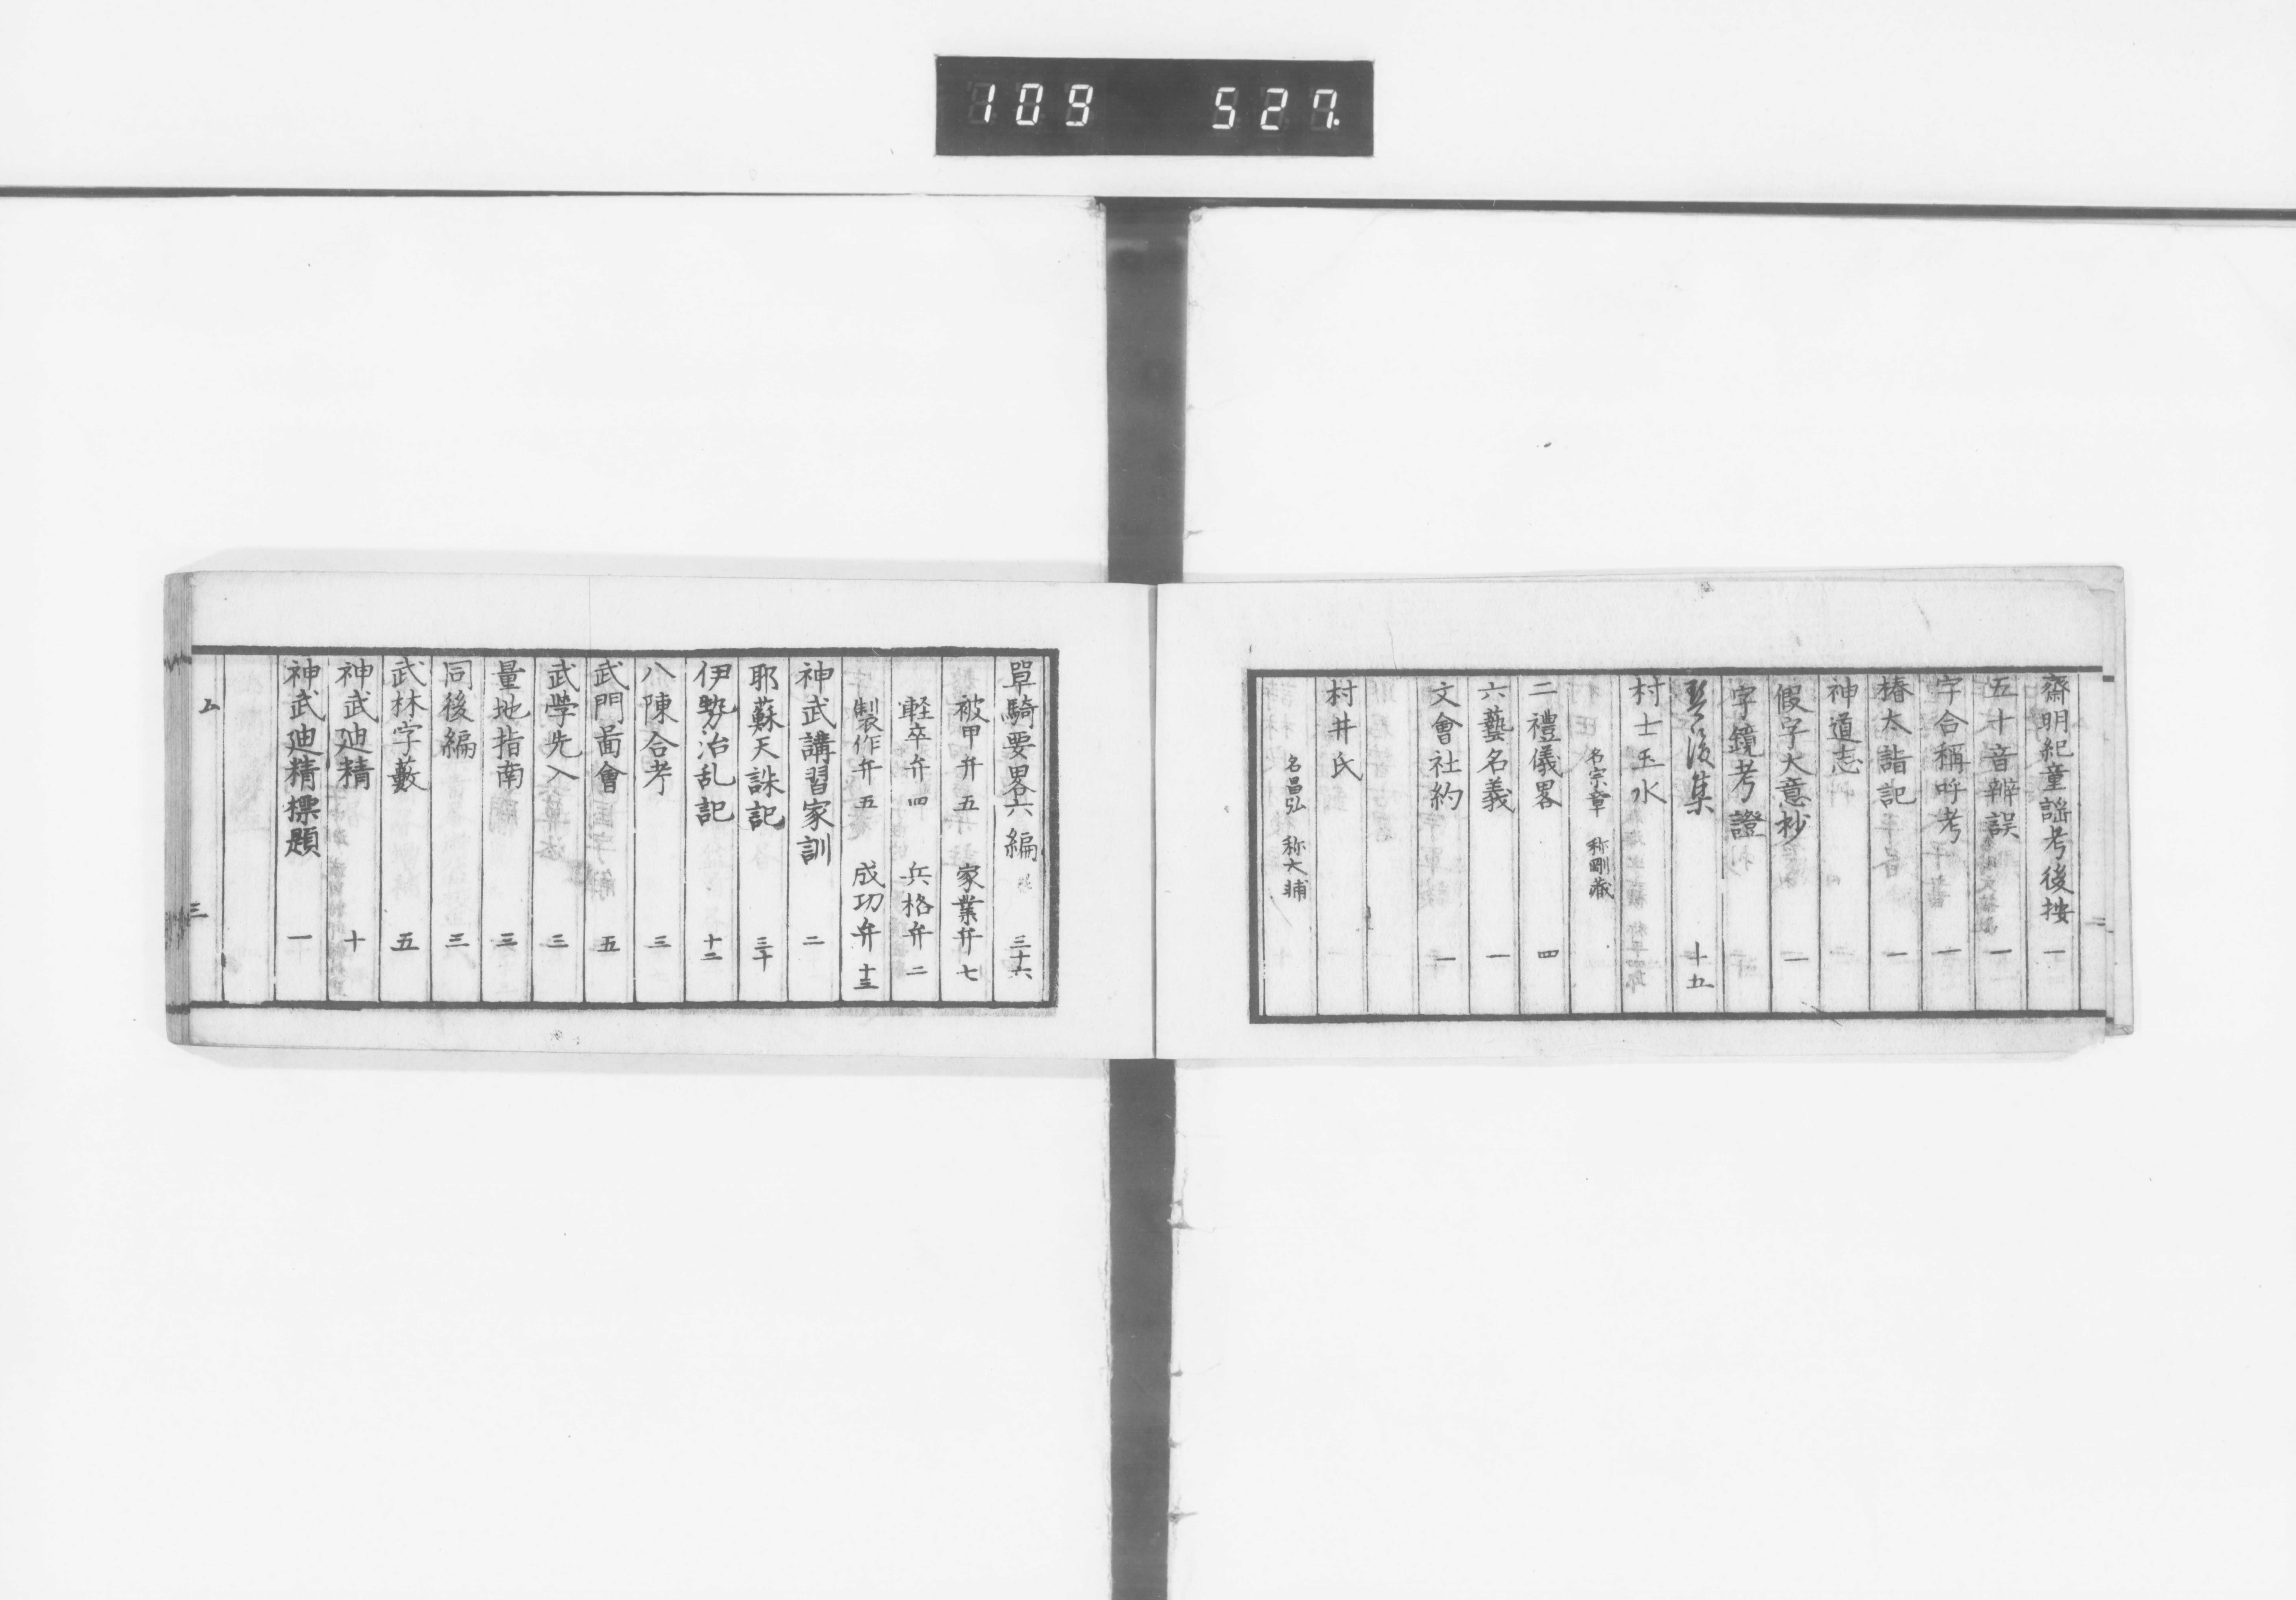 109 527.
齋明紀童謡考後按 一
五十音辨誤 一
字合稱呼考 一
椿太詣記 一
神道志
假字大意抄 一
字鏡考證
琴後集 十五
村士玉水
名宗章 称剛蔵
二禮儀畧 四
六藝名義 一
文會社約 一
村井氏
名昌弘 称大輔
單騎要畧六編 三十六
被甲弁 五 家業弁 七
軽卒弁 四 兵格弁 二
製作弁 五 成功弁 十三
神武講習家訓 二
耶蘇天誅記 三十
伊勢治乱記 十二
八陳合考 三
武門圖會 五
武學先入 三
量地指南 三
同後編 三
武林字藪 五
神武廸精 十
神武廸精標題 一
五
三